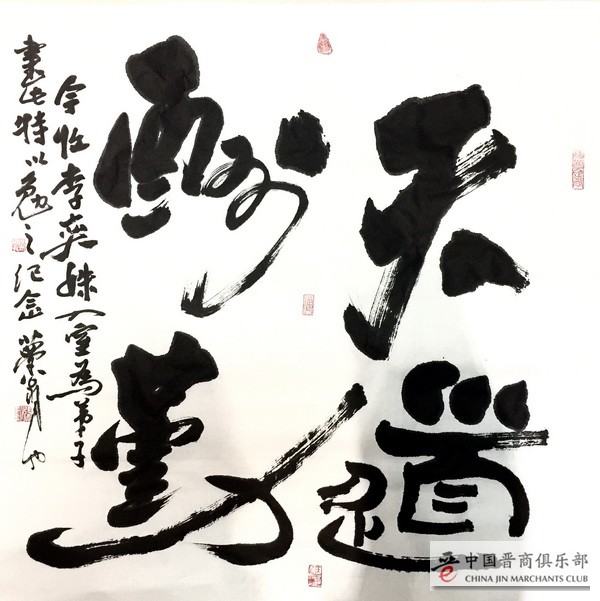 天道
酬勤
今收李奕姝入室為弟子
書此特以勉之紀念
中国晋商俱乐部
CHINA JIN MARCHANTS CLUB